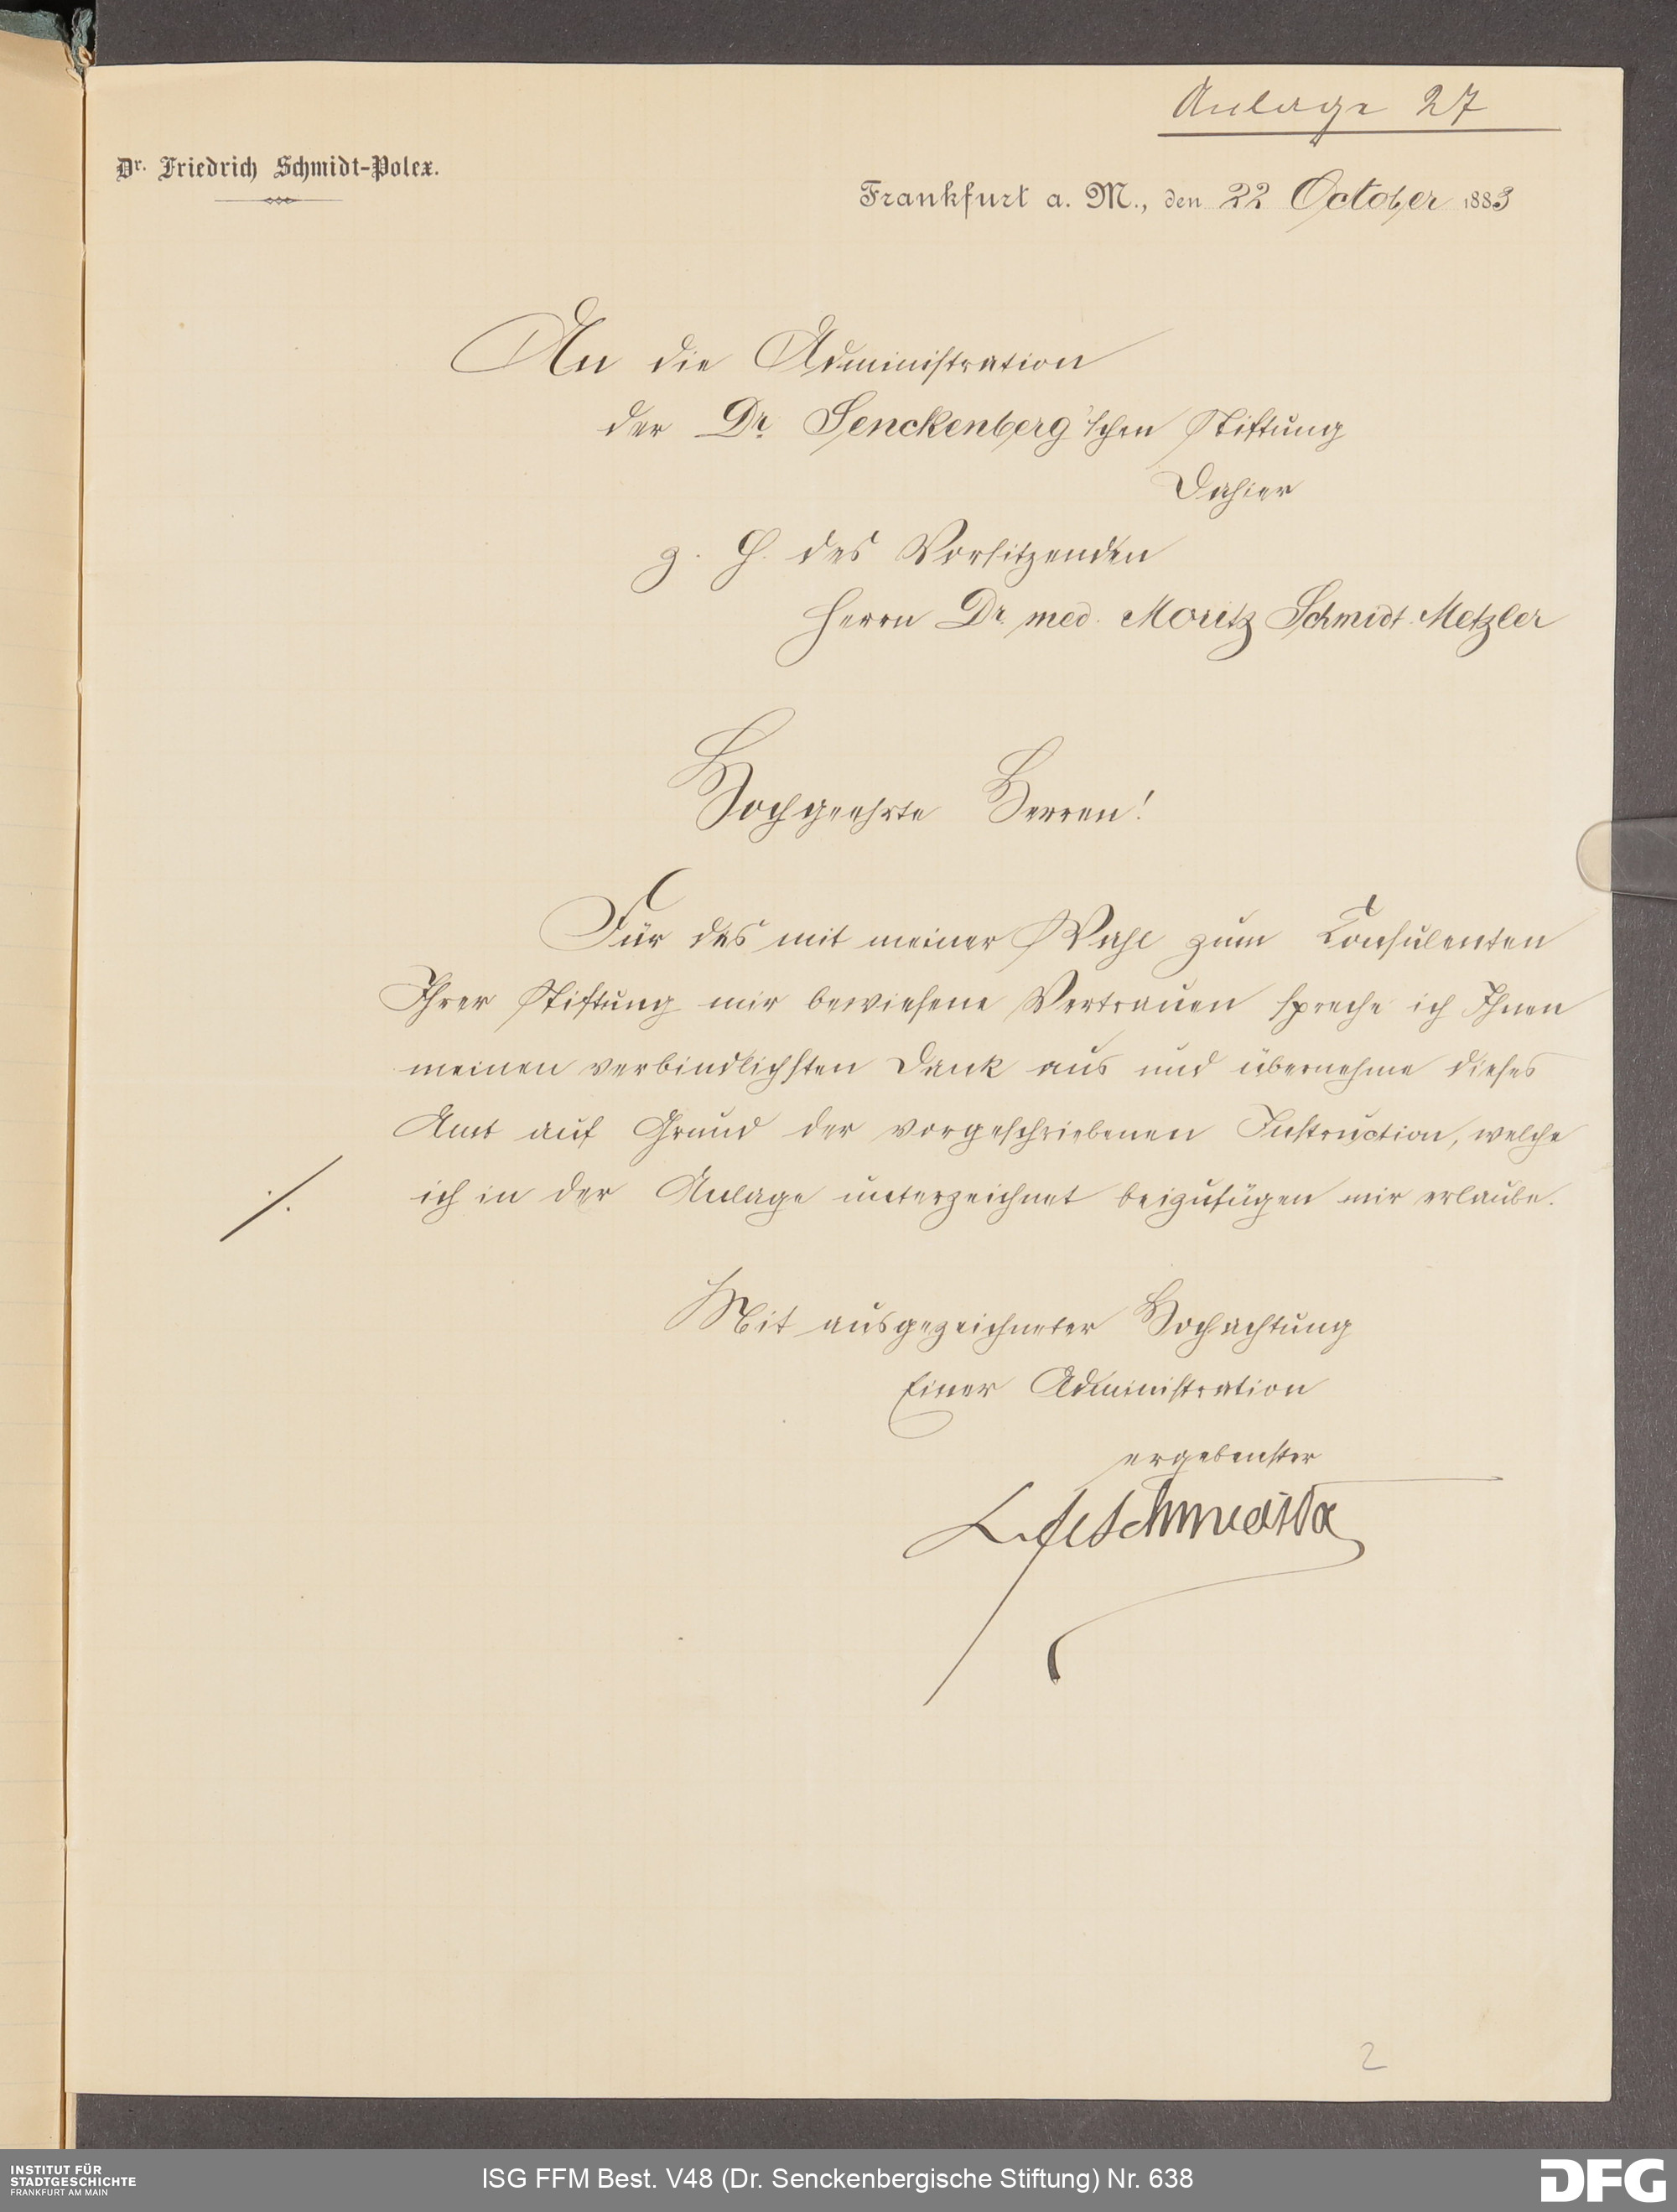 Anlage 27
Dr. Friedrich Schmidt-Polex.
Frankfurt a. M., den 22 October 1883
An die Administration
der Dr. Senckenberg'schen Stiftung
Dahier
z. H. des Vorsitzenden
Herrn Dr. med. Moritz Schmidt-Metzler
Hochgeehrte Herren!
Für das mit meiner Wahl zum Consulenten
Ihrer Stiftung mir bewiesene Vertrauen spreche ich Ihnen
meinen verbindlichsten Dank aus und übernehme dieses
Amt auf Grund der vorgeschriebenen Instruction, welche
ich in der Anlage unterzeichnet beizufügen mir erlaube.
Mit ausgezeichneter Hochachtung
Einer Administration
ergebenster
2
INSTITUT FÜR
STADTGESCHICHTE
FRANKFURT AM MAIN
ISG FFM Best. V48 (Dr. Senckenbergische Stiftung) Nr. 638
DFG